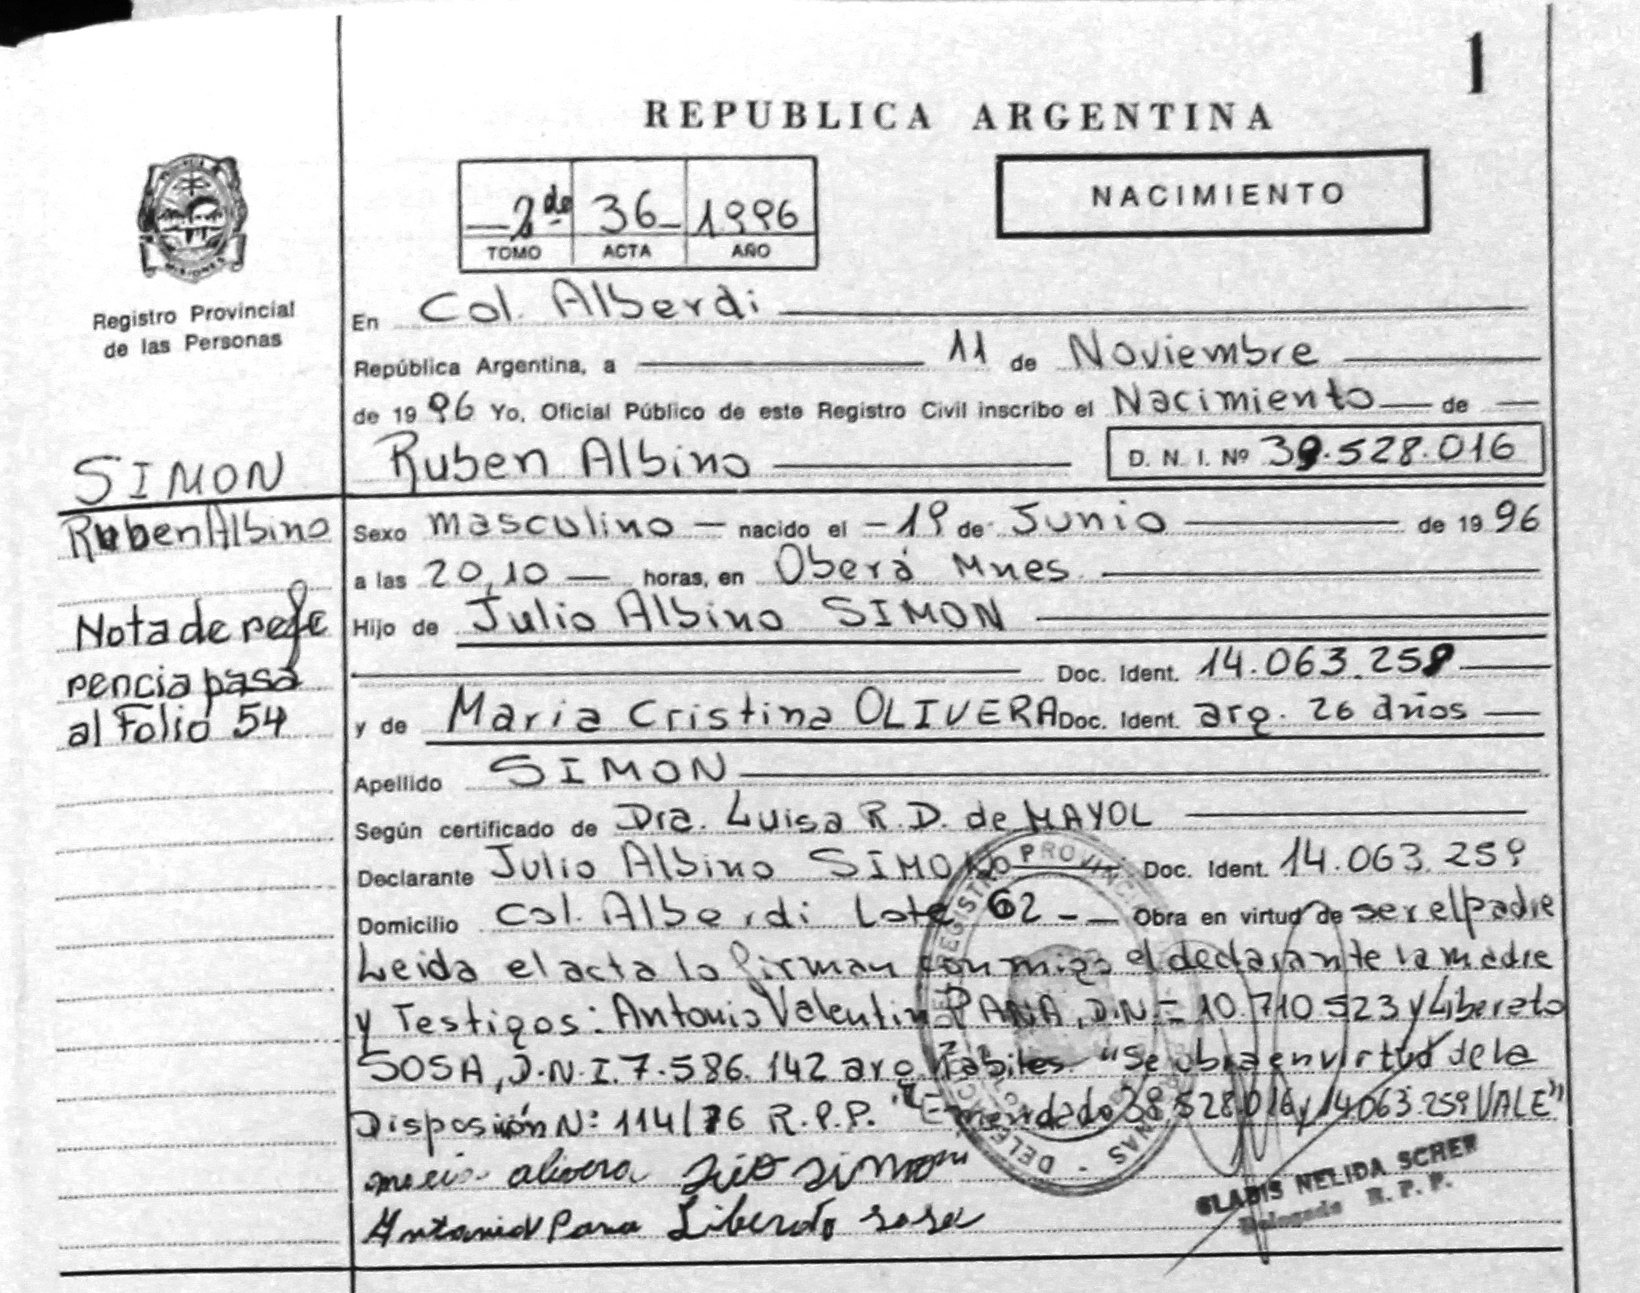 1
REPUBLICA ARGENTINA
NACIMIENTO
2do 36 1996
TOMO ACTA AÑO
MISIONES
Registro Provincial
de las Personas
En Col. Alberdi
República Argentina, a 11 de Noviembre
de 1996 Yo, Oficial Público de este Registro Civil inscribo el Nacimiento de
Ruben Albino D. N. I. Nº 39.528.016
SIMON
Ruben Albino
Nota de refe
rencia pasa
al Folio 54
Sexo masculino nacido el 19 de Junio de 1996
a las 20,10 horas, en Oberá Mnes.
Hijo de Julio Albino SIMON
Doc. Ident. 14.063.259
y de Maria Cristina OLIVERA Doc. Ident. arg. 26 años
Apellido SIMON
Según certificado de Dra. Luisa R. D. de MAYOL
Declarante Julio Albino SIMON Doc. Ident. 14.063.259
Domicilio Col. Alberdi Lote 62 Obra en virtud de ser el padre
Leida el acta lo firman conmigo el declarante la madre
y Testigos: Antonio Valentin PANA, D.N.I. 10.710.523 y Libereto
SOSA, D.N.I. 7.586.142 arg. habiles. "Se obra en virtud de la
Disposición Nº 114/76 R.P.P. "Emendado 38.528.016 y 14.063.259 VALE"
olivera simon
Antonio V Pana Liberato sosa
GLADIS NELIDA SCHER
Delegada R. P. P.
DEL REGISTRO PROVINCIAL DE LAS PERSONAS - DELEGACION